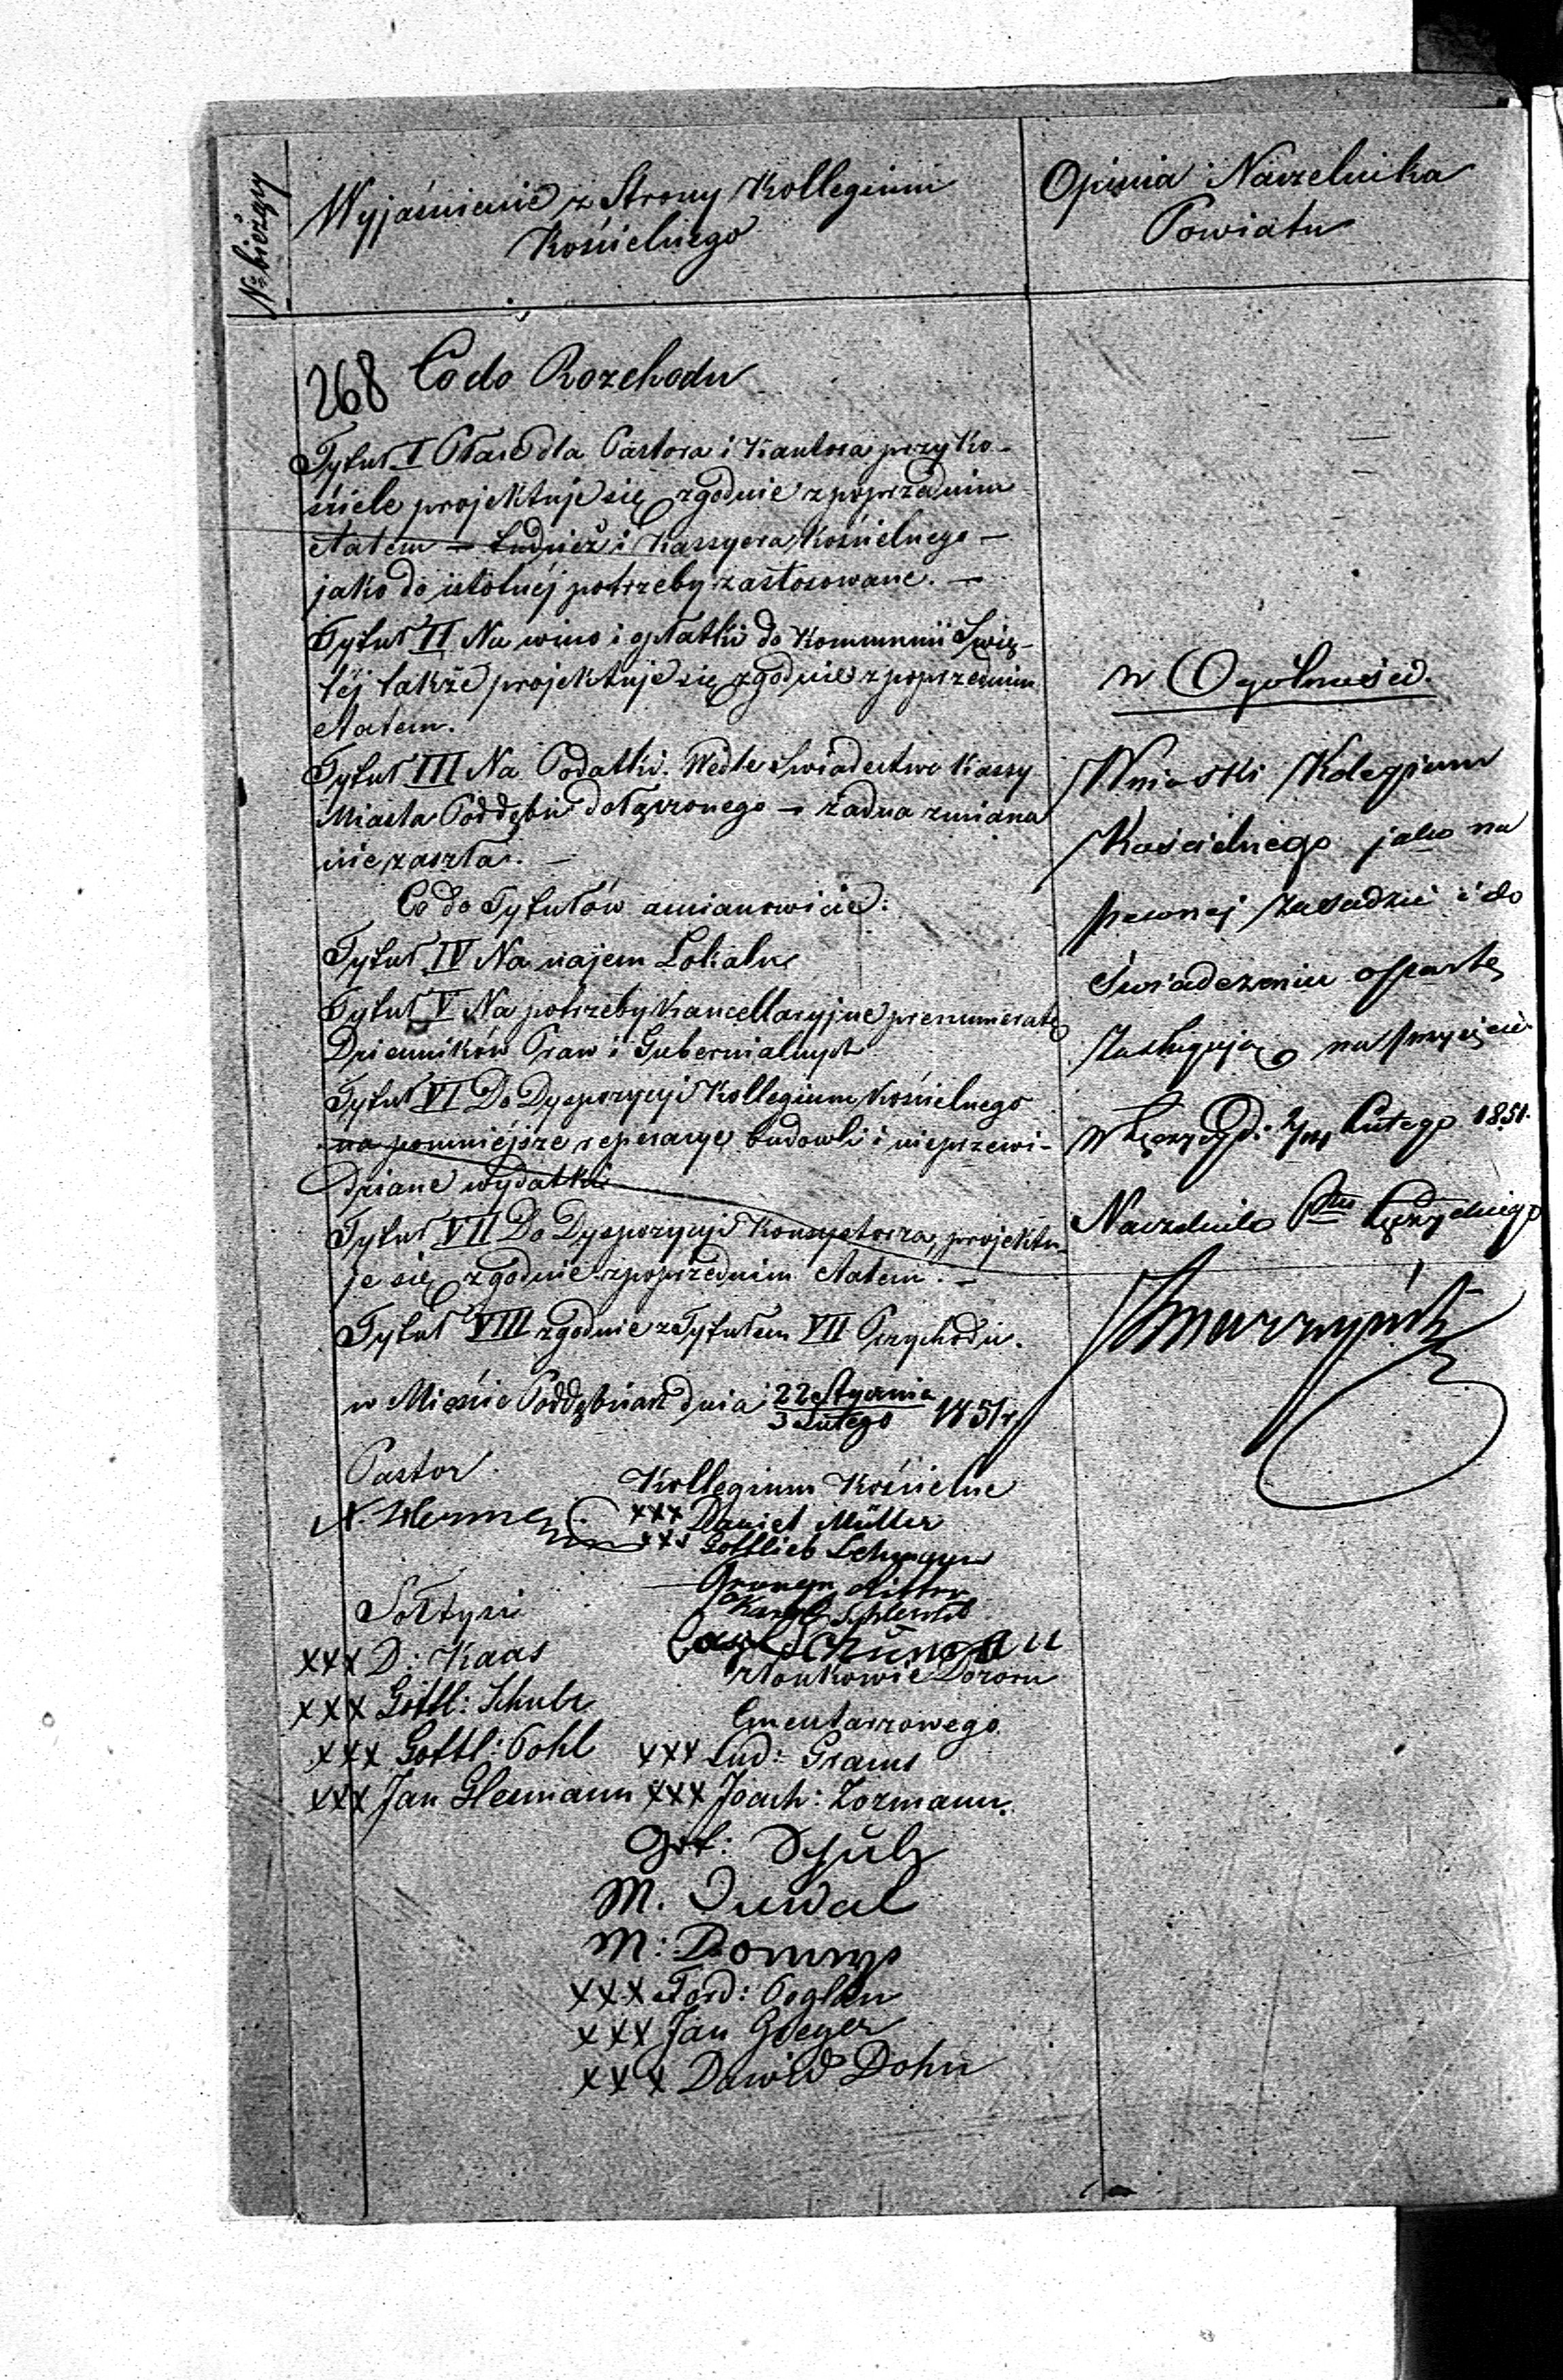 No bieżący
Wyjaśnienie z Strony Kollegium
Kościelnego
Opinia Naczelnika
Powiatu
268 Co do Rozchodu
Tytuł I Płace dla Pastora i Kantora przy Ko-
ściele projektuje się zgodnie z poprzednim
etatem – tudzież i Kassyera Kościelnego –
jako do istotnéj potrzeby zastosowane. –
Tytuł II Na wino i opłatki do Kommunii Swię-
téj także projektuje się zgodnie z poprzednim
etatem.
Tytuł III Na Podatki. Wedle Swiadectwa Kassy
Miasta Poddębic dołączonego – żadna zmiana
nie zaszła. –
Co do Tytułów a mianowicie:
Tytuł IV Na najem Lokalu
Tytuł V Na potrzeby Kancellaryjne prenumeratę
Dzienników Praw i Gubernialnych
Tytuł VI Do Dyspozycyi Kollegium Kościelnego
na pomniejsze reperacye budowli i nieprzewi-
dziane wydatki
Tytuł VII Do Dyspozycyi Konsystorza, projektu-
je się zgodnie z poprzednim etatem. –
Tytuł VIII zgodnie z Tytułem VII Przychodu.
w Mieście Poddębicach dnia 22 Stycznia
3 Lutego 1851 r.
w Ogolności.
Wnioski Kolegium
Kościelnego jako na
pewnej zasadzie i do
świadczeniu oparte
zasługują na przyjęcie
w Łęczycy d: Lutego 1851.
Naczelnik Ptu Łęczyckiego
Pastor
Kollegium Kościelne
xxx Daniel Müller
xxx Gottlieb
Sołtysi
xxx D: Kaas
xxx Gottl: Schulz
xxx Gottl: Pohl
xxx Jan
Karol
Członkowie Dozoru
Cmentarzowego
xxx Lud: Grams
xxx Joach: Zozmann.
Got: Schulz
M.
M:
xxx Ferd:
xxx Jan Geeyer
xxx Dawid Dohn